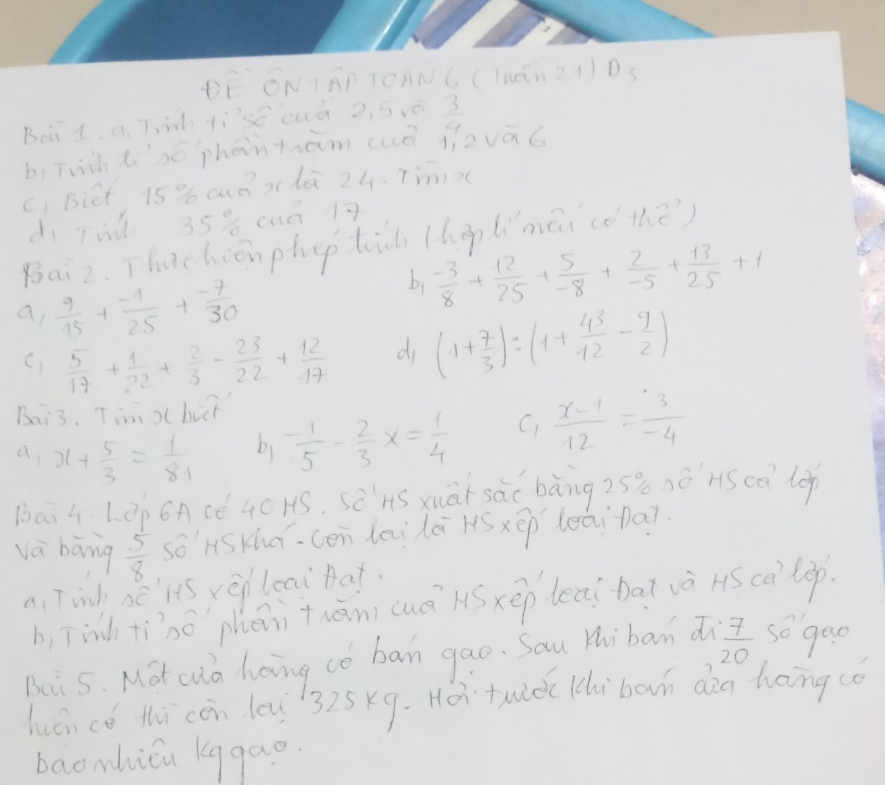 ĐỀ ÔN TẬP TOÁN 6 (Tuần 21) Đ3
Bài 1. a, Tính tỉ số của 2,5 và 3/4
b, Tính tỉ số phần trăm của 1,2 và 6
c, Biết 15% của x là 24. Tìm x
d, Tính 35% của 17
Bài 2. Thực hiện phép tính (hợp lí nếu có thể)
a, 9/15 + -1/25 + -7/30 b, -3/8 + 12/25 + 5/-8 + 2/-5 + 13/25 + 1
c, 5/17 + 1/22 + 2/3 - 23/22 + 12/17 d, (1 + 7/3) : (1 + 43/12 - 9/2)
Bài 3. Tìm x biết
a, x + 5/3 = 1/81 b, -1/5 - 2/3 x = 1/4 c, x-1/12 = 3/-4
Bài 4. Lớp 6A có 40 HS. Số HS xuất sắc bằng 25% số HS cả lớp
và bằng 5/8 số HS khá - Còn lại là HS xếp loại Đạt.
a, Tính số HS xếp loại Đạt.
b, Tính tỉ số phần trăm của HS xếp loại Đạt và HS cả lớp.
Bài 5. Một cửa hàng có bán gạo. Sau khi bán đi 7/20 số gạo
hiện có thì còn lại 325 kg. Hỏi trước khi bán cửa hàng có
bao nhiêu kg gạo.